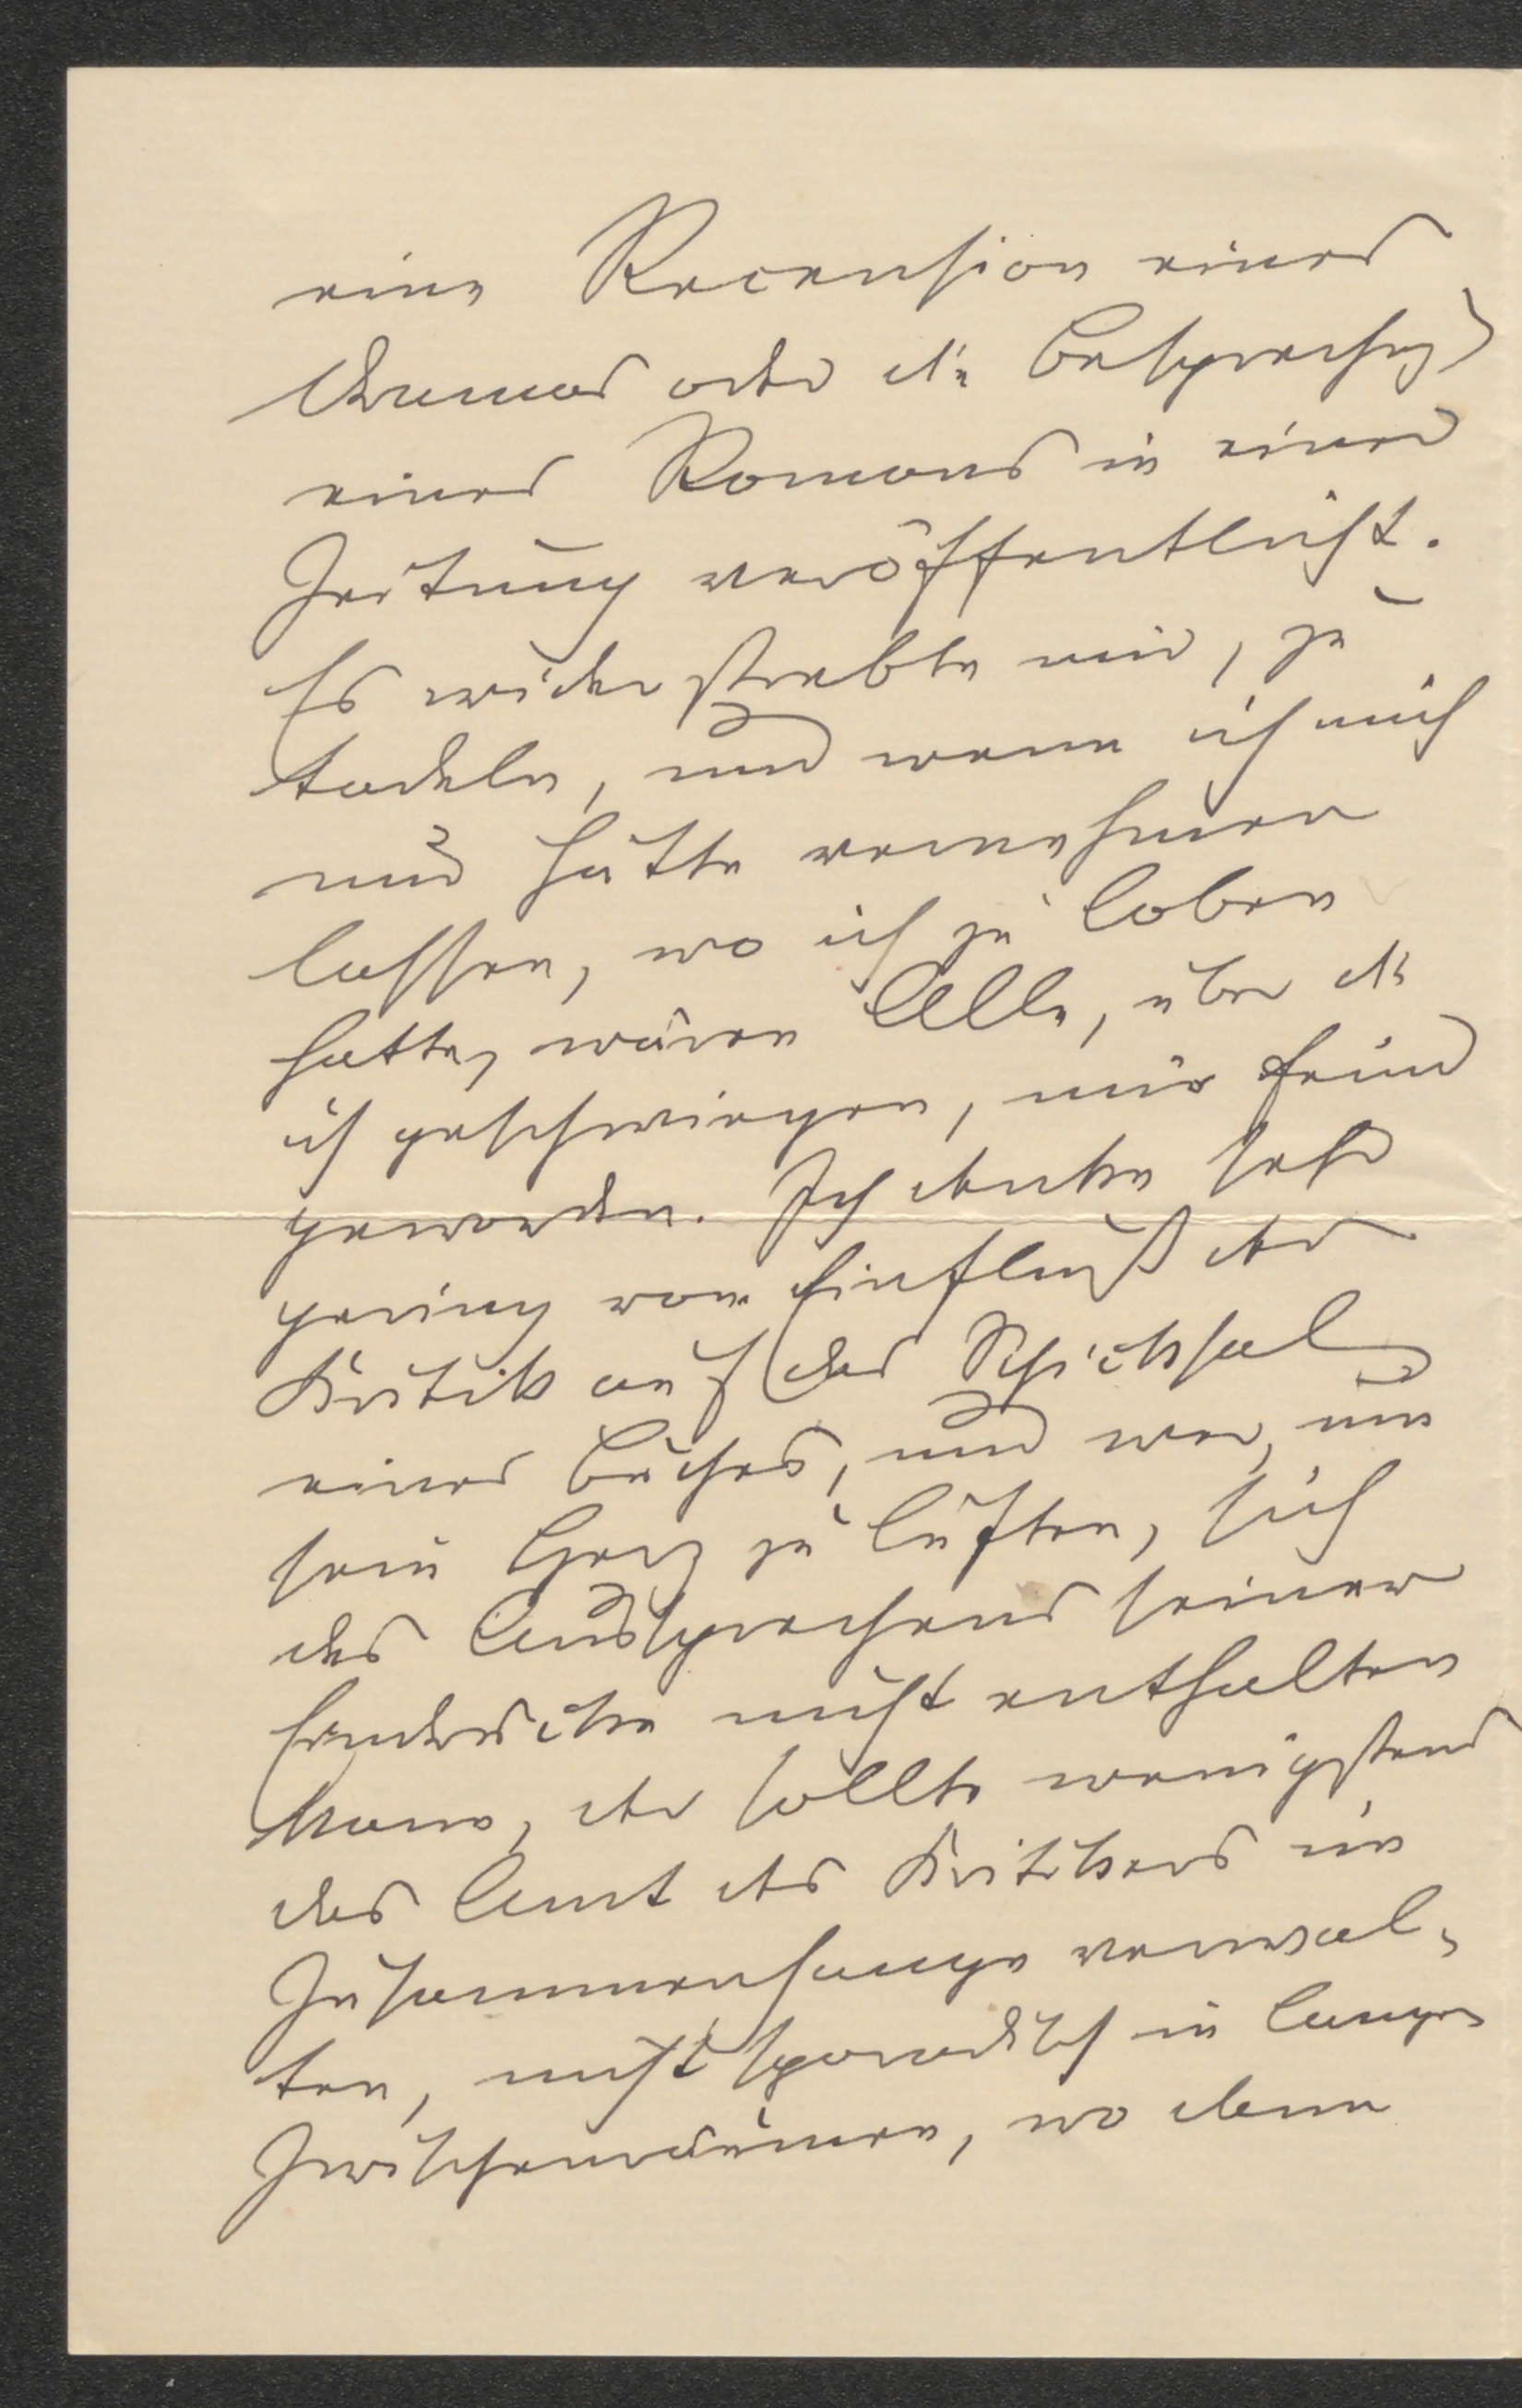 eine Recension eines
Dramas oder die Besprechung
eines Romans in einer
Zeitung veröffentlicht.
Es widerstrebte mir, zu
tadeln, und wenn ich mich
nur hätte vernehmen
lassen, wo ich zu loben
hatte, wären Alle, über die
ich geschwiegen, mir feind
geworden. Ich denke sehr
gering vom Einfluß der
Kritik auf das Schicksal
eines Buches, und wer, um
sein Herz zu lüften, sich
des Aussprechens seiner
Eindrücke nicht enthalten
kann, der sollte wenigstens
das Amt des Kritikers im
Zusammenhange verwal-
ten, nicht sporadisch in langen
Zwischenräumen, wo denn